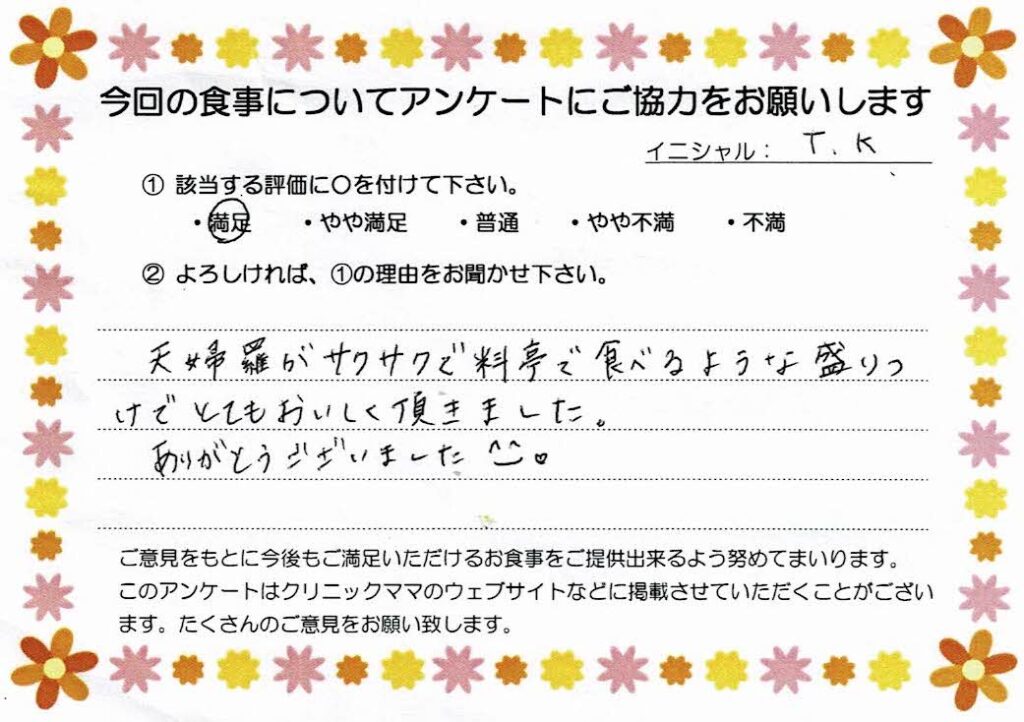 今回の食事についてアンケートにご協力をお願いします
イニシャル： T. K
① 該当する評価に○を付けて下さい。
・満足 ・やや満足 ・普通 ・やや不満 ・不満
② よろしければ、①の理由をお聞かせ下さい。
天婦羅がサクサクで料亭で食べるような盛りつ
けでとてもおいしく頂きました。
ありがとうございました ^^
ご意見をもとに今後もご満足いただけるお食事をご提供出来るよう努めてまいります。
このアンケートはクリニックママのウェブサイトなどに掲載させていただくことがござい
ます。たくさんのご意見をお願い致します。